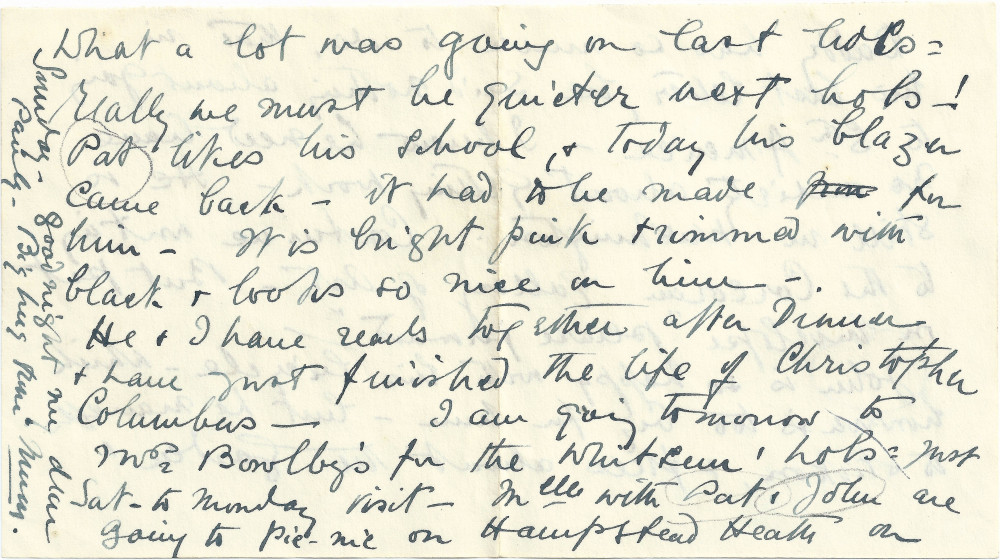 What a lot was going on last hols =
Really we must be quieter next hols - !
Pat likes his school, & today his blazer
came back - it had to be made for
him - It is bright pink trimmed with
black & looks so nice on him -.
He & I have reads together after Dinner
& have just finished the life of Christopher
Columbus - I am going tomorrow to
Mrs Bowlby's for the Whitsun' hols = just
Sat - to Monday visit - Melle with Pat & John are
going to pic-nic on Hampstead Heath on
Sunday - Goodnight my dear
Pauly - Big hug from Mum.